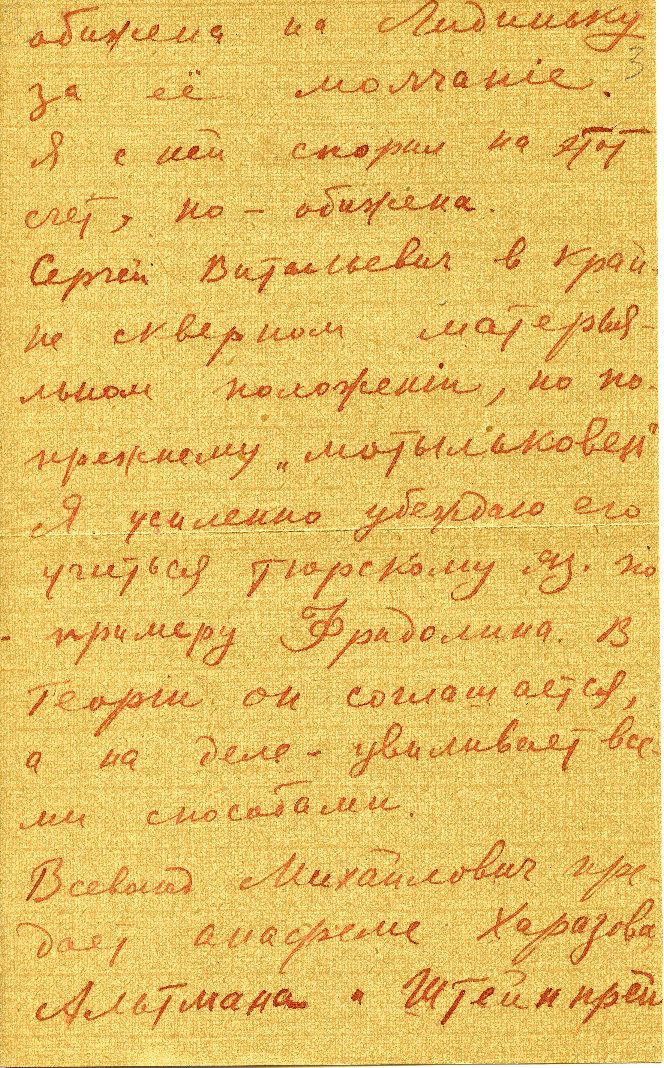 обижена на Лидиньку
3
за её молчанiе.
Я с ней спорил на этот
счет, но – обижена.
Сергей Витальевич в край-
не скверном матерья-
льном положенiи, но по-
прежнему „мотыльковен"
Я усиленно убеждаю его
учиться тюрскому яз. по
примеру Фридолина. В
теорiи он соглашается,
а на деле – увиливает все-
ми способами.
Всеволод Михайлович пре-
дает анафеме Харазова
Альтмана и Штейнпрей